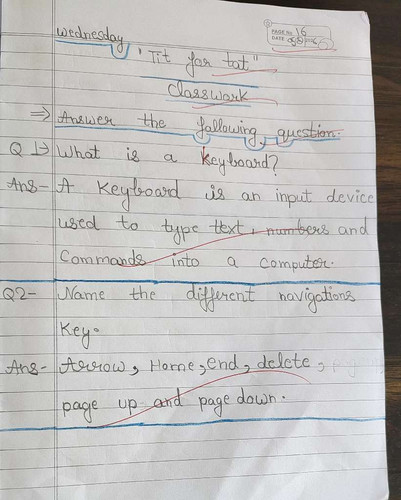 PAGE No. 16
DATE
Wednesday
'Tit for tat"
Classwork
⇒ Answer the following question.
Q 1→ What is a Keyboard?
Ans- A Keyboard is an input device
used to type text, numbers and
Commands into a computer.
Q2- Name the different navigations
Key.
Ans- Arrow, Home, end, delete,
page up and page down.